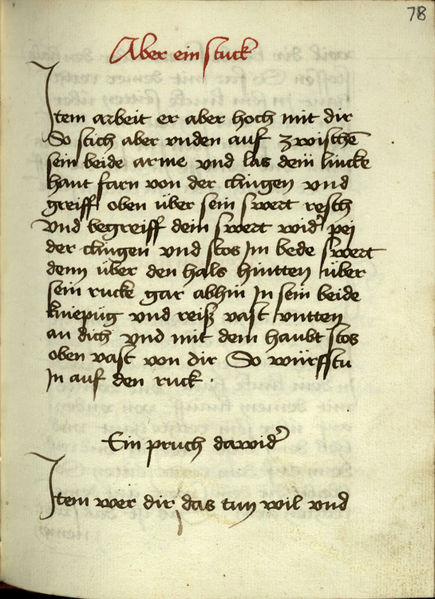 78
Aber ein stuck
Item arbeit er aber hoch mit dir
So stich aber vnden auf zwischē
sein beide arme vnd las dein lincke
hant farn von der clingen vnd
greiff oben über sein swert resch
vnd begreiff dein swert wider pei
der clingen vnd stos Im bede swert
denn über den hals hintten über
sein rucke gar abhin In sein beide
kniepüg vnd reiß vast vntten
an dich vnd mit dem haubt stos
oben vast von dir So würffstu
In auf den ruck ·
Ein pruch dawider
Item wer dir das tun wil vnd